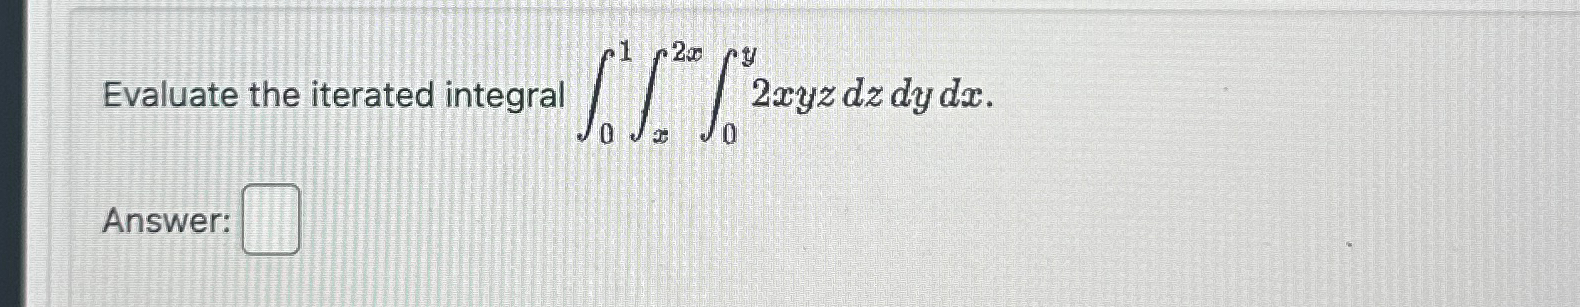 Evaluate the iterated integral $\int_0^1 \int_x^{2x} \int_0^y 2xyz \, dz \, dy \, dx.$
Answer: